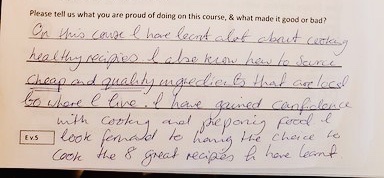 Please tell us what you are proud of doing on this course, & what made it good or bad?
On this course I have learnt alot about cooking
healthy recipies I also know how to source
cheap and quality ingredients that are local
to where I live. I have gained confidence
with cooking and preparing food I
Ev.5 look forward to having the chance to
cook the 8 great recipies I have learnt